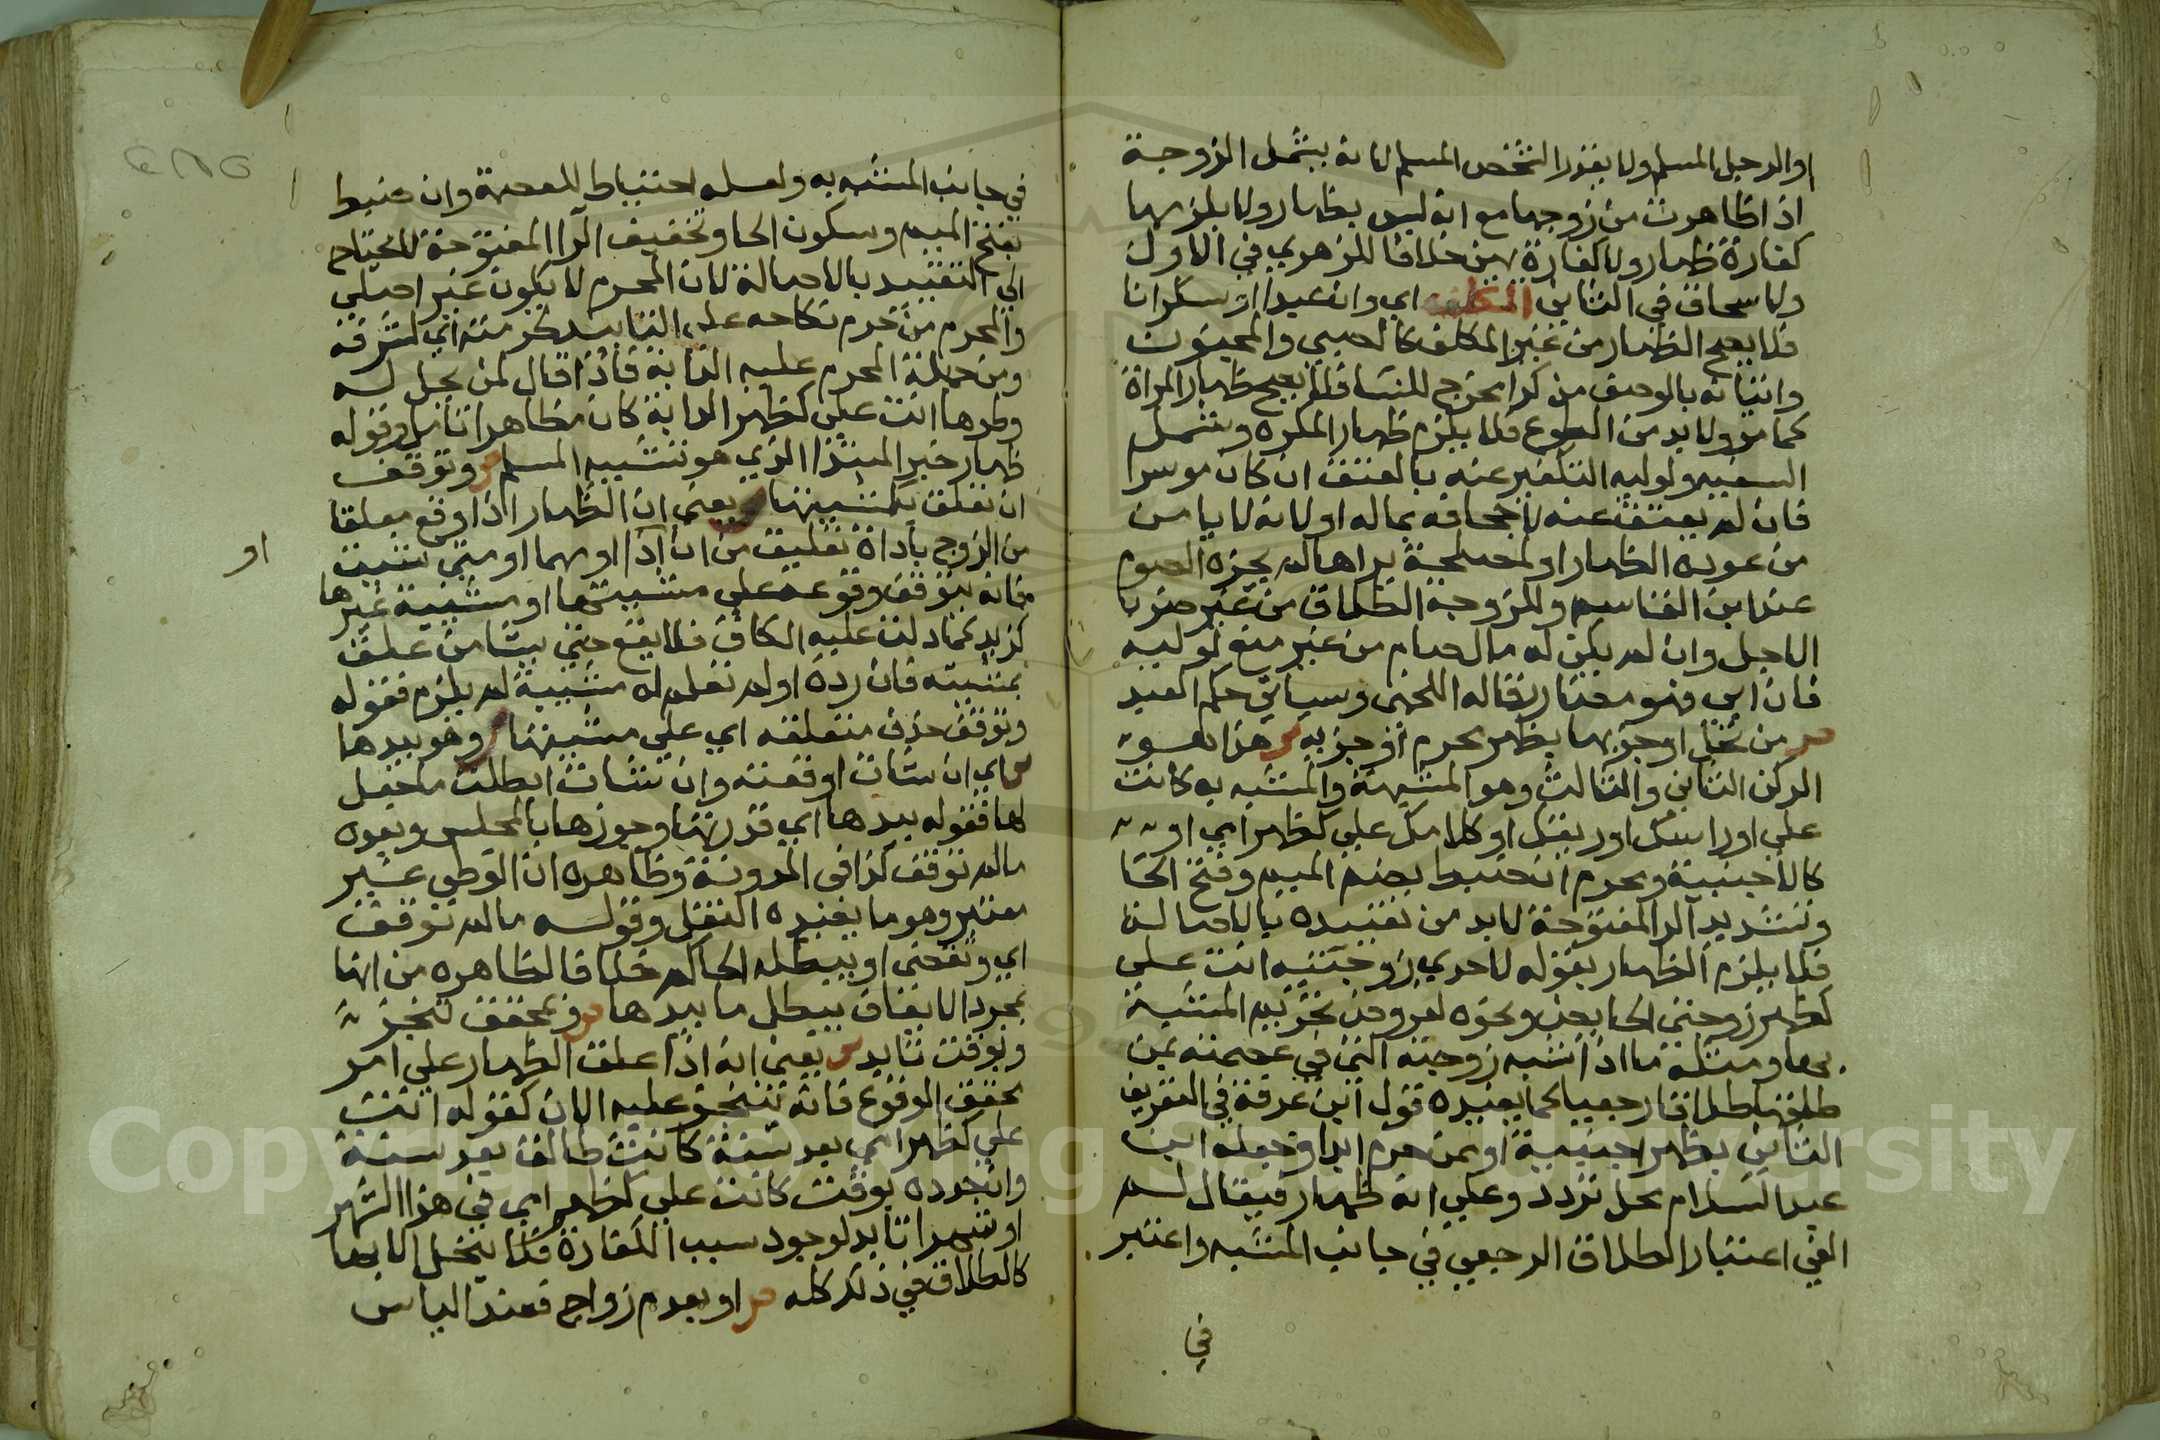 او الرجل المسلم ولا يقدر الشخص المسلم لانه يشمل الزوجة
اذا ظاهرت من زوجها مع انه ليس بظهار ولا يلزمها
كفارة ظهار ولا كفارة يمين خلافا للزهري في الاول
ولا سحاق في الثاني المكلف اي وان عبدا او سكرانا
فلا يصح الظهار من غير المكلف كالصبي والمجنون
واتيانه بالوصف مذكرا مخرج للنسا فلا يصح ظهار المراة
كما مر ولا بد من الطوع فلا يلزم ظهار المكره ويشمل
السفيه ولوليه التكفير عنه بالعتق ان كان موسرا
فان لم يعتق عنه لاجحافه بماله او لانه لا يامن
من عوده الظهار او لمصلحة يراها لم يجزه الصوم
عند ابن القاسم وللزوجة الطلاق من غير ضرب
الاجل وان لم يكن له مال صام من غير منع لوليه
فان ابي فهو مضار نقاله اللخمي وسياتي حكم العبد
ص من تحل او جزيها بظهر محرم او جزيه ش هذا هو
الركن الثاني والثالث وهو المشبهة والمشبه به كانت
علي او راسك او ريقك او كلامك علي كظهر امي او
كالاجنبية ومحرم ان ضبط بضم الميم وفتح الحا
وتشديد الرا المفتوحة لابد من تقييده بالاصالة
فلا يلزم الظهار بقوله لاحدي زوجتيه انت علي
كظهر زوجتي الحايض ونحوه لعروض تحريم المشبه
بها ومثله ما اذا شبه زوجته التي في عصمته بمن
طلقها طلاقا رجعيا كما يفيده قول ابن عرفة في التعريف
الثاني بظهر اجنبية او بمن حرم ابدا وجعله ابن
عبد السلام محل تردد وعلي انه ظهار فيقال لم
الغي اعتبار الطلاق الرجعي في جانب المشبه واعتبر
في
في جانب المشبه به ولعله احتياط للعصمة وان ضبط
بفتح الميم وسكون الحا وتخفيف الرا المفتوحة لا يحتاج
الي التقييد بالاصالة لان المحرم لا يكون غير اصلي
والمحرم من حرم نكاحه علي التابيد لحرمته اي لشرفه
ومن جملة المحرم عليه الدابة فاذا قال لمن يحل له
وطوها انت علي كظهر الدابة كان مظاهرا تامل وقوله
ظهار خبر المبتدا الذي هو تشبيه المسلم ص وتوقف
ان تعلق بمشيتها ش يعني ان الظهار اذا وقع معلقا
من الزوج باداة تعليق من ان اذا او مهما او متي شيت
او
فانه يتوقف وقوعه علي مشيتها او مشيية غيرها
كزيد كما دلت عليه الكاف فلا يقع حتي يشا من علق
بمشيته فان رده او لم تعلم له مشيية لم يلزم فقوله
وتوقف حذف متعلقه اي علي مشيتها ص وهو بيدها
ش اي ان شات اوقعته وان شات ابطلت ما جعل
لها فقوله بيدها اي قدرتها وحوزها بالمجلس وبعده
ما لم توقف كذا في المدونة وظاهره ان الوطي غير
معتبر وهو ما يفيده النقل وقوله ما لم توقف
اي وتقضي او يبطله الحاكم خلافا لظاهره من انها
بمجرد الايقاف يبطل ما بيدها ص وبمحقق تنجز
وبوقت تابد ش يعني انه اذا علق الظهار علي امر
محقق الوقوع فانه يتنجز عليه الان كقوله انت
علي كظهر امي بعد سنة كانت طالق بعد سنة
وان حدده بوقت كانت علي كظهر امي في هذا الشهر
او شهرا تابد لوجود سبب الكفارة فلا ينحل الا بها
كالطلاق في ذلك كله ص او بعدم زواج فعند الياس
Copyright © King Saud University